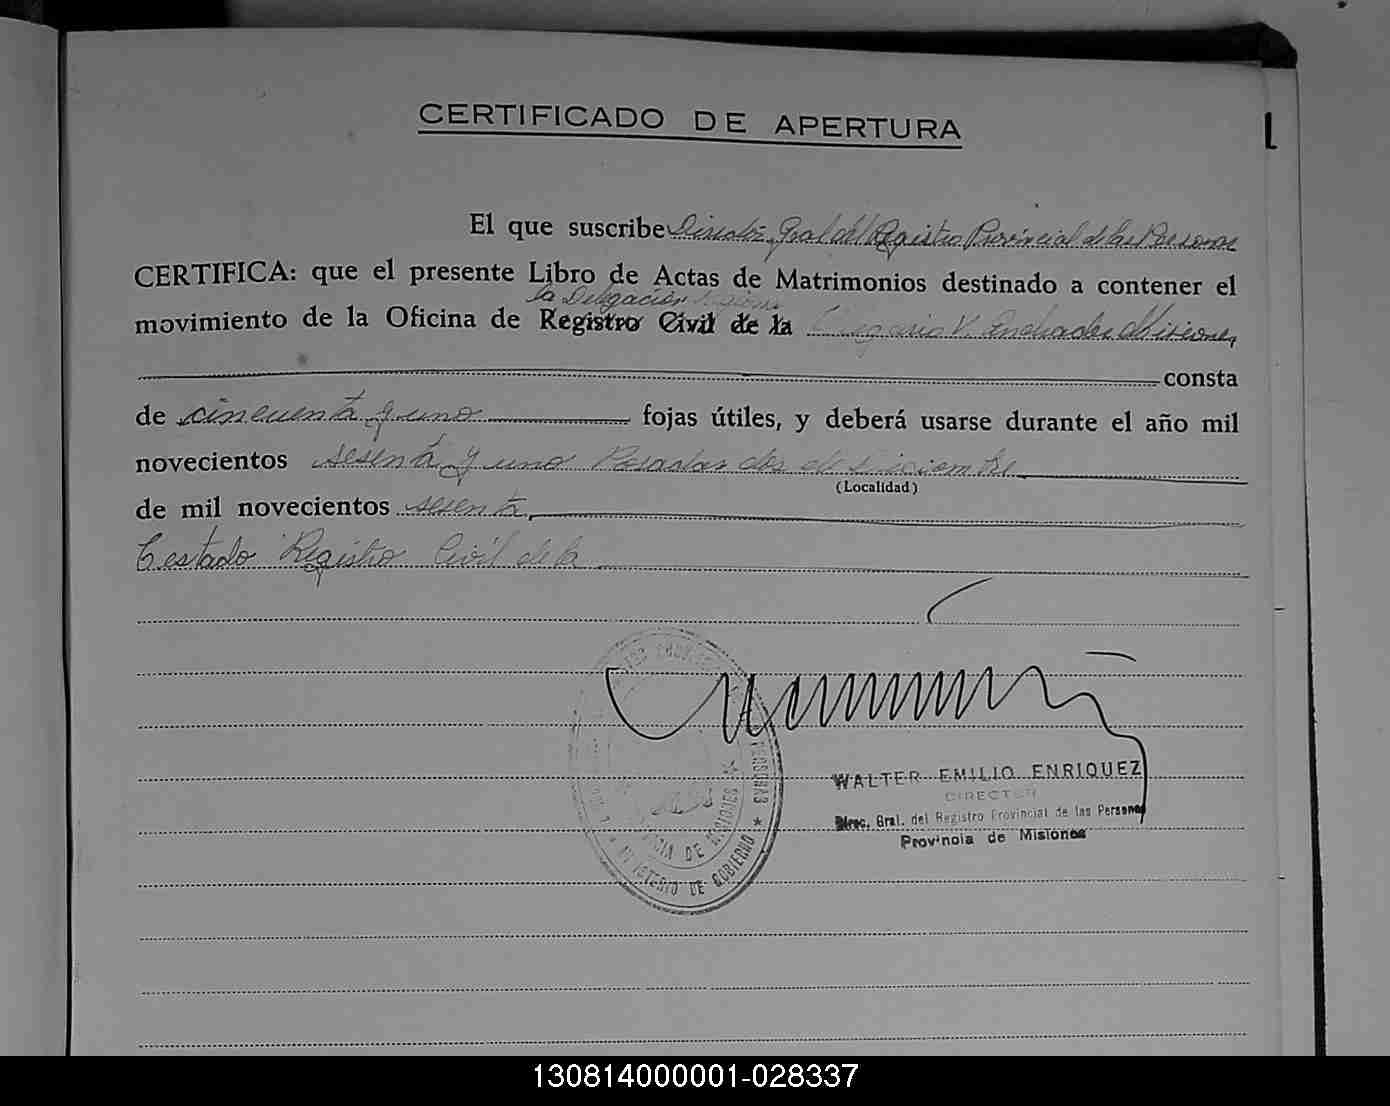 CERTIFICADO DE APERTURA
El que suscribe Director Gral del Registro Provincial de las Personas
CERTIFICA: que el presente Libro de Actas de Matrimonios destinado a contener el
la Delegación
movimiento de la Oficina de Registro Civil de la Olegario V. Andrade Misiones,
consta
de cincuenta y uno fojas útiles, y deberá usarse durante el año mil
novecientos sesenta y uno Posadas dos de Diciembre
(Localidad)
de mil novecientos sesenta,
Testado Registro Civil de la
WALTER EMILIO ENRIQUEZ
DIRECTOR
Direc. Gral. del Registro Provincial de las Personas
Provincia de Misiones
PERSONAS * MINISTERIO DE GOBIERNO *
PROVINCIA DE MISIONES *
130814000001-028337